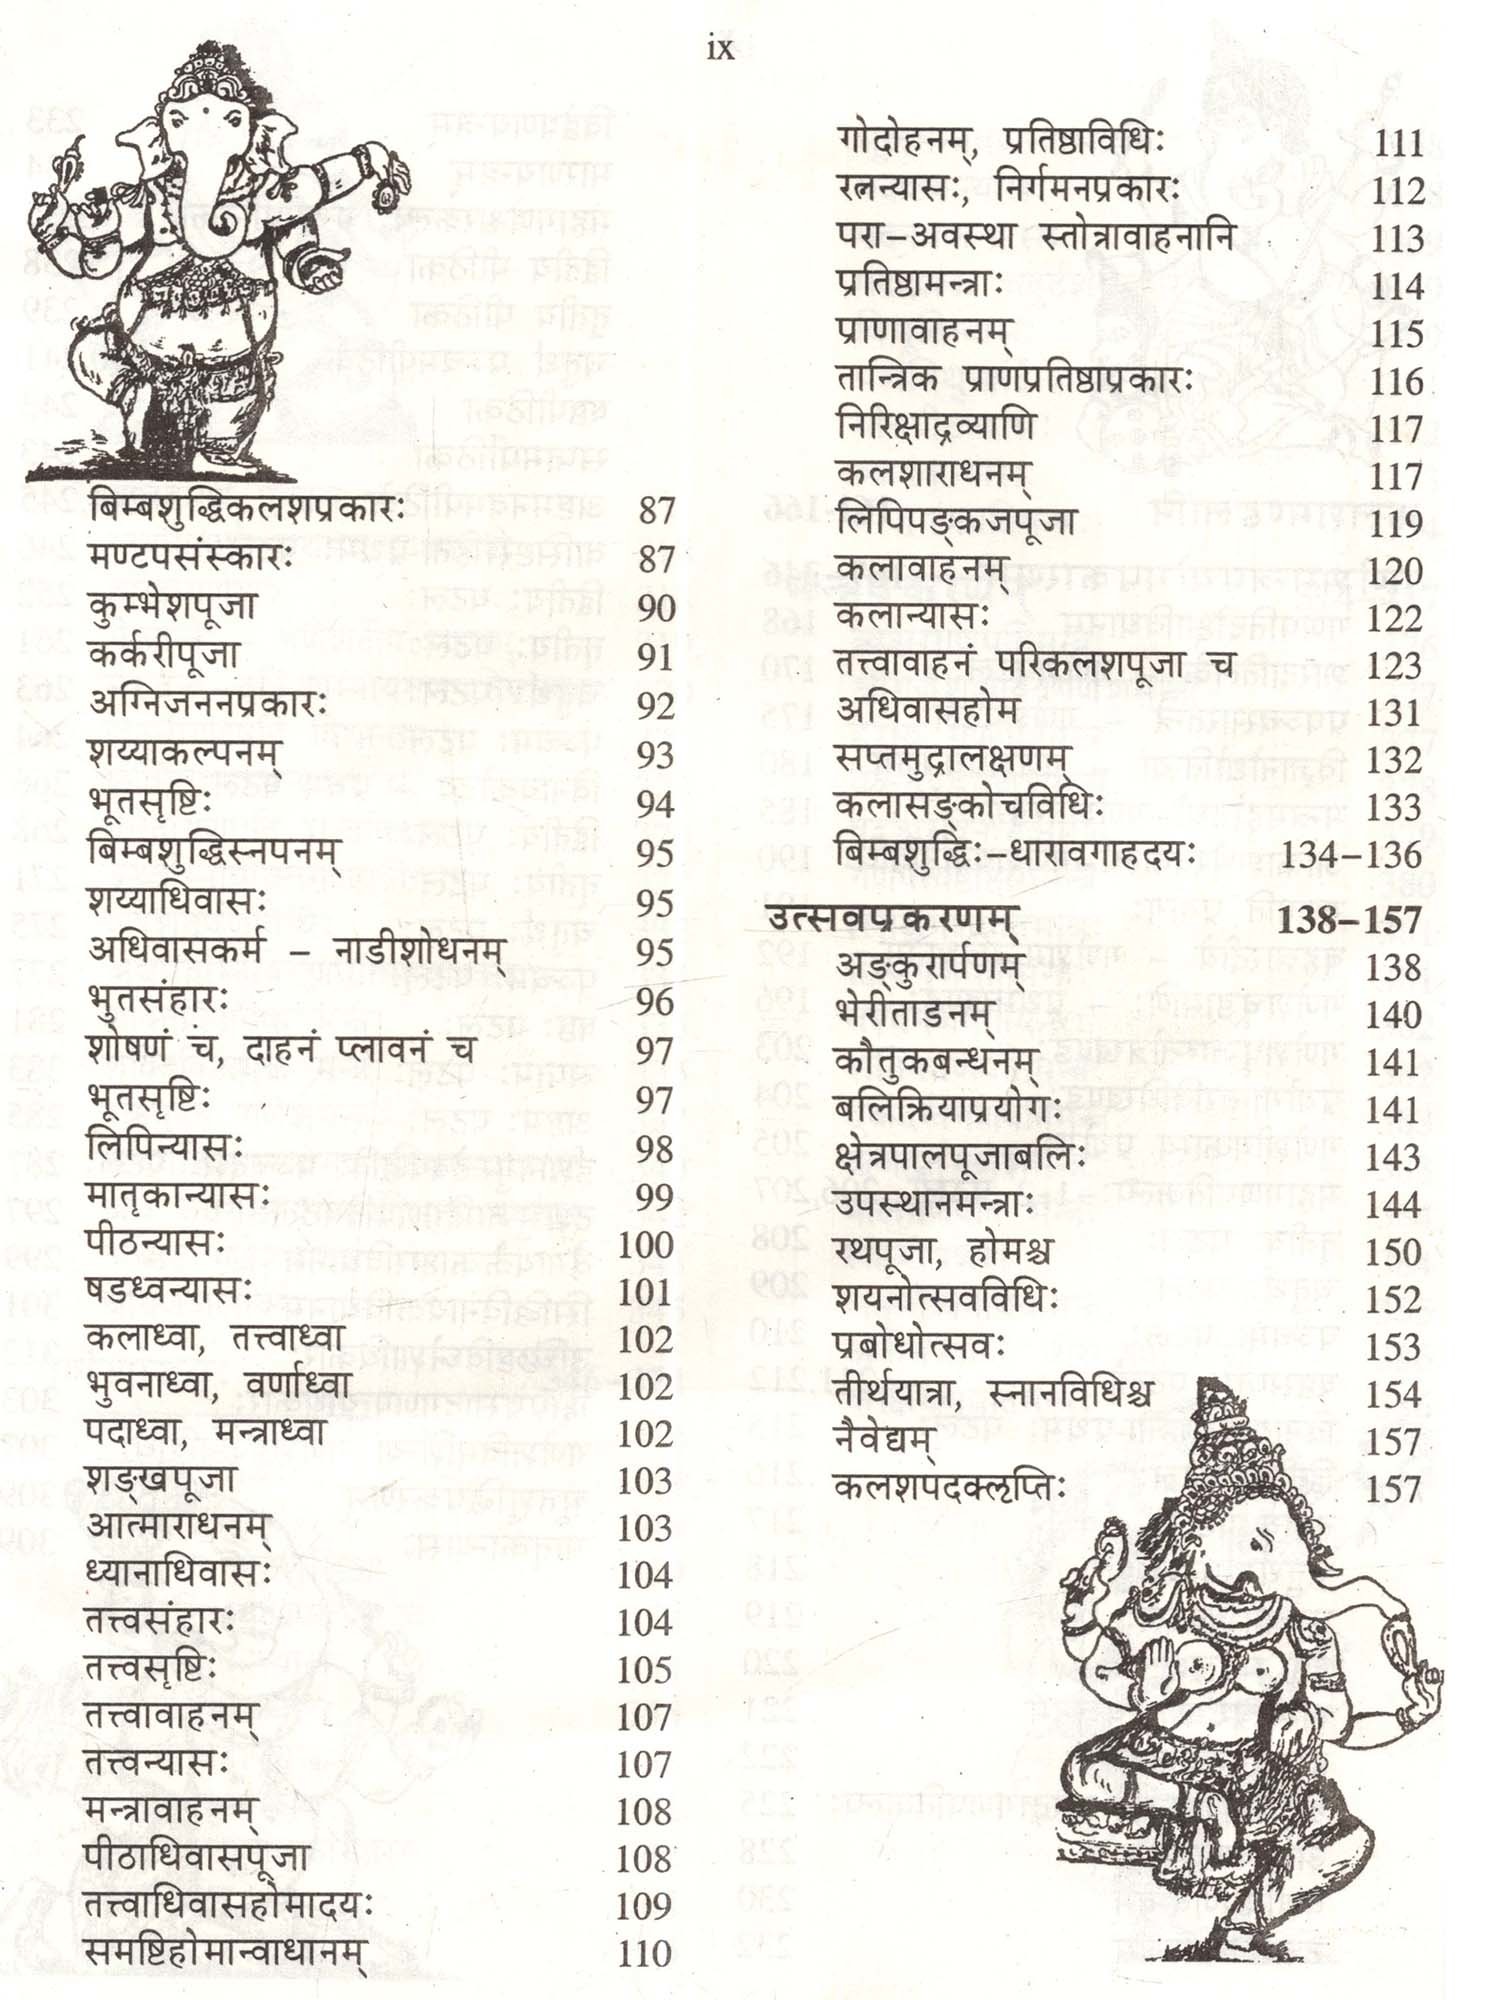 ix
बिम्बशुद्धिकलशप्रकारः 87
मण्टपसंस्कारः 87
कुम्भेशपूजा 90
कर्करीपूजा 91
अग्निजननप्रकारः 92
शय्याकल्पनम् 93
भूतसृष्टिः 94
बिम्बशुद्धिस्नपनम् 95
शय्याधिवासः 95
अधिवासकर्म – नाडीशोधनम् 95
भुतसंहारः 96
शोषणं च, दाहनं प्लावनं च 97
भूतसृष्टिः 97
लिपिन्यासः 98
मातृकान्यासः 99
पीठन्यासः 100
षडध्वन्यासः 101
कलाध्वा, तत्त्वाध्वा 102
भुवनाध्वा, वर्णाध्वा 102
पदाध्वा, मन्त्राध्वा 102
शङ्खपूजा 103
आत्माराधनम् 103
ध्यानाधिवासः 104
तत्त्वसंहारः 104
तत्त्वसृष्टिः 105
तत्त्वावाहनम् 107
तत्त्वन्यासः 107
मन्त्रावाहनम् 108
पीठाधिवासपूजा 108
तत्त्वाधिवासहोमादयः 109
समष्टिहोमान्वाधानम् 110
गोदोहनम्, प्रतिष्ठाविधिः 111
रत्नन्यासः, निर्गमनप्रकारः 112
परा–अवस्था स्तोत्रावाहनानि 113
प्रतिष्ठामन्त्राः 114
प्राणावाहनम् 115
तान्त्रिक प्राणप्रतिष्ठाप्रकारः 116
निरिक्षाद्रव्याणि 117
कलशाराधनम् 117
लिपिपङ्कजपूजा 119
कलावाहनम् 120
कलान्यासः 122
तत्त्वावाहनं परिकलशपूजा च 123
अधिवासहोम 131
सप्तमुद्रालक्षणम् 132
कलासङ्कोचविधिः 133
बिम्बशुद्धिः–धारावगाहदयः 134–136
उत्सवप्रकरणम् 138–157
अङ्कुरार्पणम् 138
भेरीताडनम् 140
कौतुकबन्धनम् 141
बलिक्रियाप्रयोगः 141
क्षेत्रपालपूजाबलिः 143
उपस्थानमन्त्राः 144
रथपूजा, होमश्च 150
शयनोत्सवविधिः 152
प्रबोधोत्सवः 153
तीर्थयात्रा, स्नानविधिश्च 154
नैवेद्यम् 157
कलशपदक्लृप्तिः 157